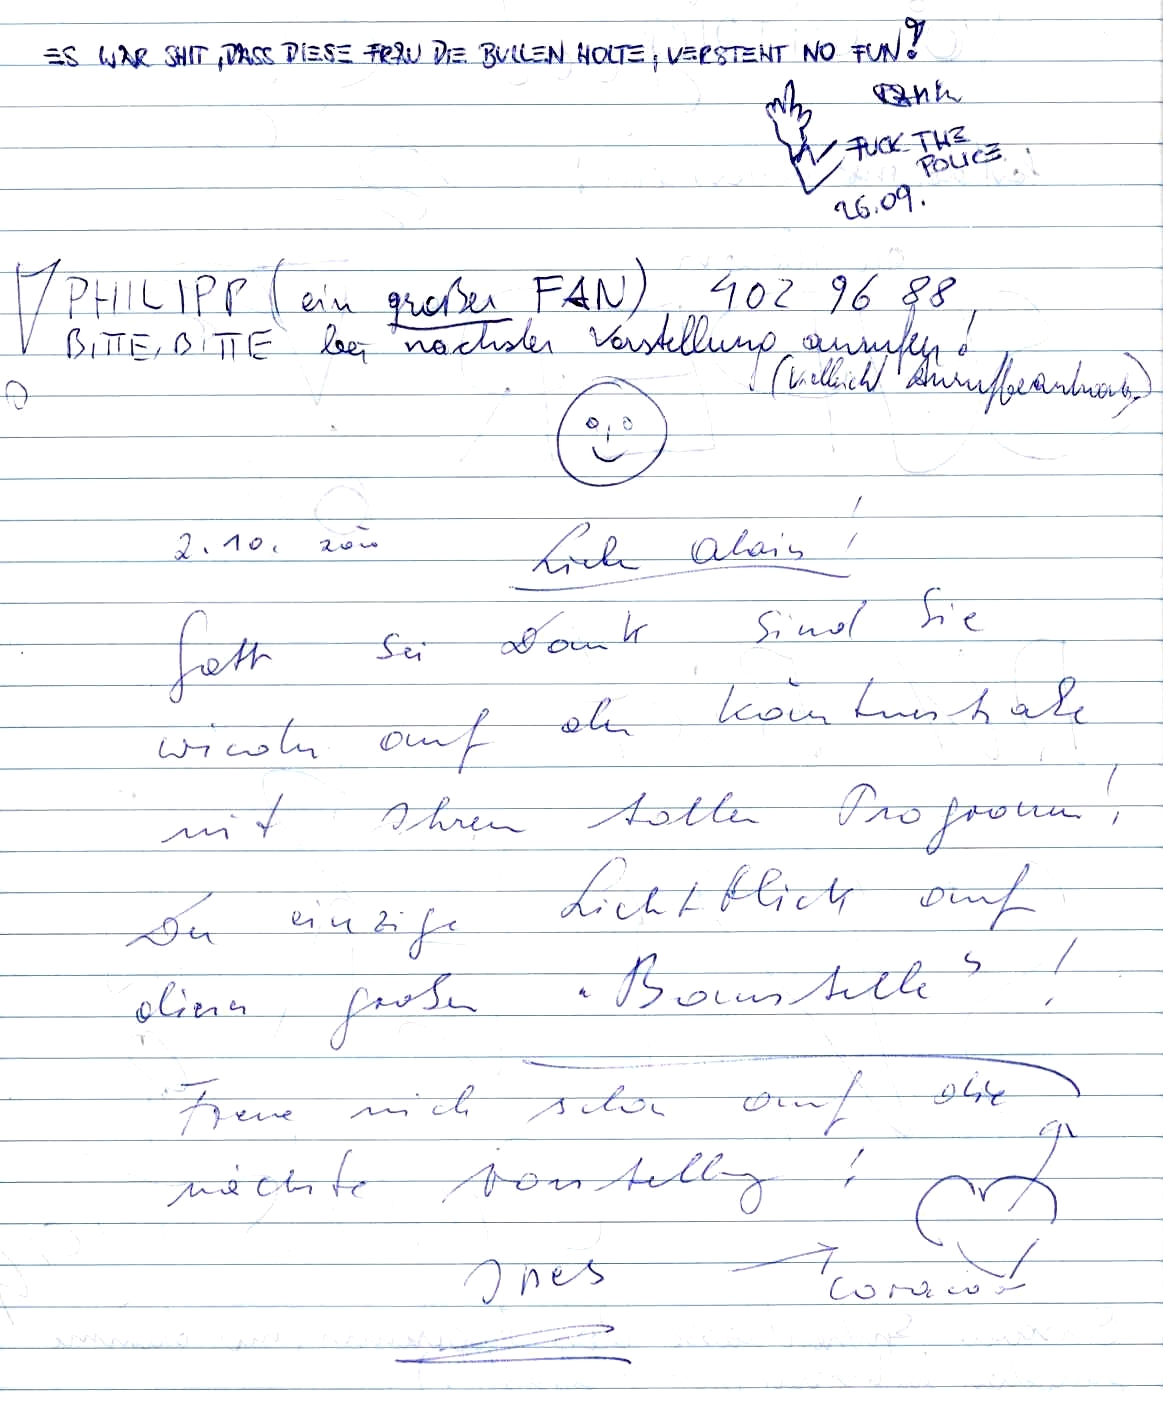 ES WAR SHIT, DASS DIESE FRAU DIE BULLEN HOLTE, VERSTEHT NO FUN!
FUCK THE
POLICE
26.09.
PHILIPP (ein großer FAN) 402 96 88
BITTE, BITTE bei nächster Vorstellung anrufen!
(vielleicht Anrufbeantwor.)
2.10. 2000 Lieber Alain!
Gott sei Dank sind Sie
wieder auf der Kärntnerstraße
mit Ihrem tollen Programm!
Der einzige Lichtblick auf
dieser großen "Baustelle"!
Freue mich schon auf die
nächste Vorstellung!
Ines
Corazon